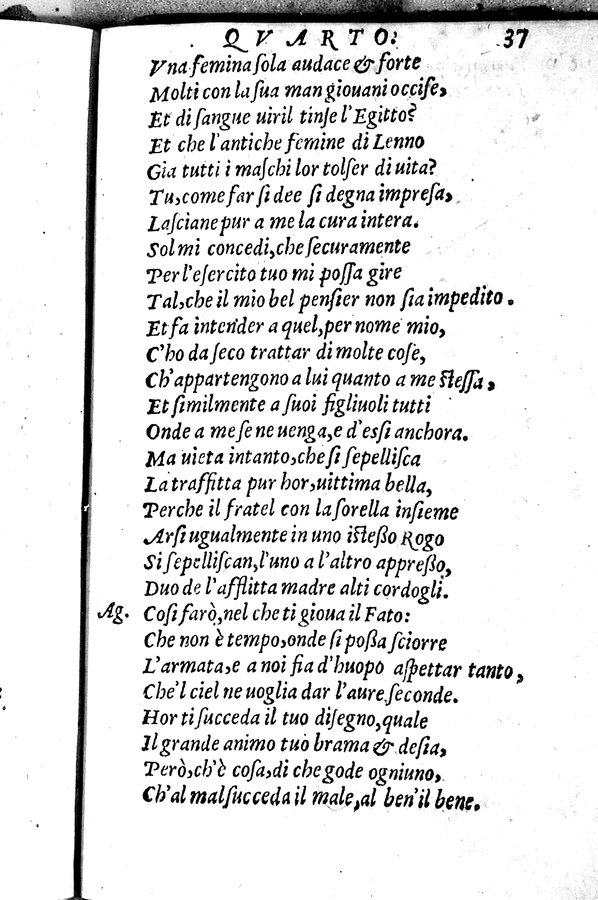 QVARTO: 37
Vna femina sola audace & forte
Molti con la sua man giouani occise,
Et di sangue uiril tinse l'Egitto?
Et che l'antiche femine di Lenno
Gia tutti i maschi lor tolser di uita?
Tu, come far si dee si degna impresa,
Lasciane pur a me la cura intera.
Sol mi concedi, che securamente
Per l'esercito tuo mi possa gire
Tal, che il mio bel pensier non sia impedito.
Et fa intender a quel, per nome mio,
C'ho da seco trattar di molte cose,
Ch'appartengono a lui quanto a me stessa,
Et similmente a suoi figliuoli tutti
Onde a me se ne uenga, e d'essi anchora.
Ma uieta intanto, che si sepellisca
La traffitta pur hor, uittima bella,
Perche il fratel con la sorella insieme
Arsi ugualmente in uno isteßo Rogo
Si sepelliscan, l'uno a l'altro appreßo,
Duo de l'afflitta madre alti cordogli.
Ag. Cosi farò, nel che ti gioua il Fato:
Che non è tempo, onde si poßa sciorre
L'armata, e a noi fia d'huopo aspettar tanto,
Che'l ciel ne uoglia dar l'aure seconde.
Hor ti succeda il tuo disegno, quale
Il grande animo tuo brama & desia,
Però, ch'è cosa, di che gode ogniuno,
Ch'al mal succeda il male, al ben' il bene.